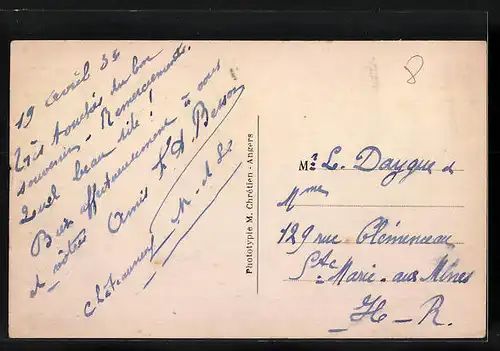 19 avril 35
Très touchés du bon
souvenir - Remerciements.
Quel beau site !
Bien affectueusement à vous
et vôtres Amis
Besson
Chateauneuf M. et L.
Phototypie M. Chrétien - Angers
Mr L. Daygue &
Mme
129 rue Clémenceau
Ste Marie-aux-Mines
H-R.
8